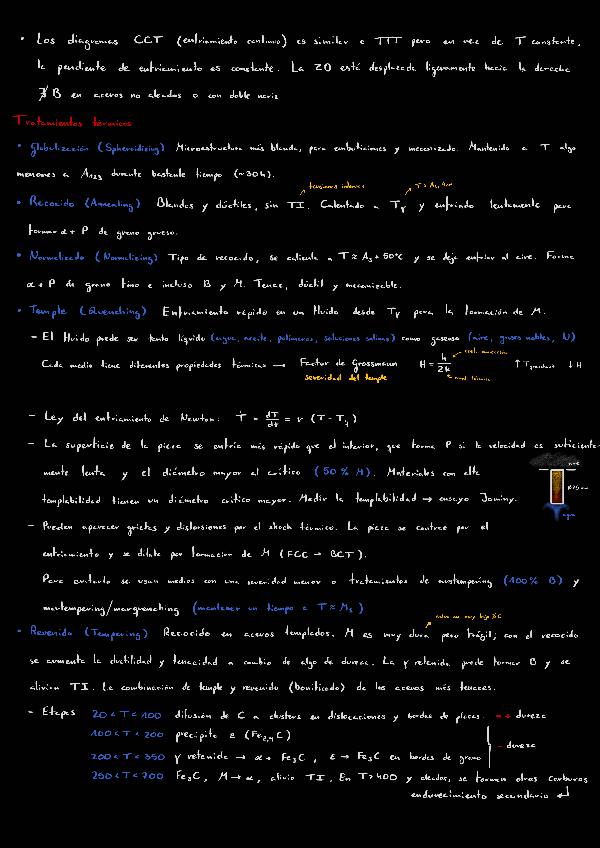 • Los diagramas CCT (enfriamiento continuo) es similar a TTT pero en vez de T constante,
la pendiente de enfriamiento es constante. La ZO está desplazada ligeramente hacia la derecha
∄ B en aceros no aleados o con doble nariz
Tratamientos térmicos
• Globulización (Spheroidizing) Microestructura más blanda, para embuticiones y mecanizado. Mantenido a T algo
menores a A₁₂₃ durante bastante tiempo (~30h).
tensiones internas
• Recocido (Annealing) Blandos y dúctiles, sin TI. Calentado a Tγ y enfriado lentamente para
formar α + P de grano grueso.
• Normalizado (Normalizing) Tipo de recocido, se calienta a T ≈ A₃ + 50°C y se deja enfriar al aire. Forma
α + P de grano fino e incluso B y M. Tenaz, dúctil y mecanizable.
• Temple (Quenching) Enfriamiento rápido en un fluido desde Tγ para la formación de M.
– El fluido puede ser tanto líquido (agua, aceite, polímeros, soluciones salinas) como gaseoso (aire, gases nobles, N)
Cada medio tiene diferentes propiedades térmicas → Factor de Grossmann H = h/2k ↑T ↓H
severidad del temple
– Ley del enfriamiento de Newton: Ṫ = dT/dt = r (T - Tf)
– La superficie de la pieza se enfría más rápido que el interior, que forma P si la velocidad es suficiente-
mente lenta y el diámetro mayor al crítico (50% M). Materiales con alta
templabilidad tienen un diámetro crítico mayor. Medir la templabilidad → ensayo Jominy.
agua
– Pueden aparecer grietas y distorsiones por el shock térmico. La pieza se contrae por el
enfriamiento y se dilata por formación de M (FCC → BCT).
Para evitarlo se usan medios con una severidad menor o tratamientos de austempering (100% B) y
martempering/marquenching (mantener un tiempo a T ≈ Ms)
• Revenido (Tempering) Recocido en aceros templados. M es muy dura pero frágil; con el recocido
se aumenta la ductilidad y tenacidad a cambio de algo de dureza. La γ retenida puede formar B y se
alivian TI. La combinación de temple y revenido (bonificado) da los aceros más tenaces.
– Etapas 20 < T < 100 difusión de C a clusters en dislocaciones y bordes de placas. dureza
100 < T < 200 precipita ε (Fe₂,₄C)
– dureza
200 < T < 350 γ retenida → α + Fe₃C, ε → Fe₃C en bordes de grano
250 < T < 700 Fe₃C, M → α, alivio TI. En T > 400 y aleados, se forman otros carburos
endurecimiento secundario ↵